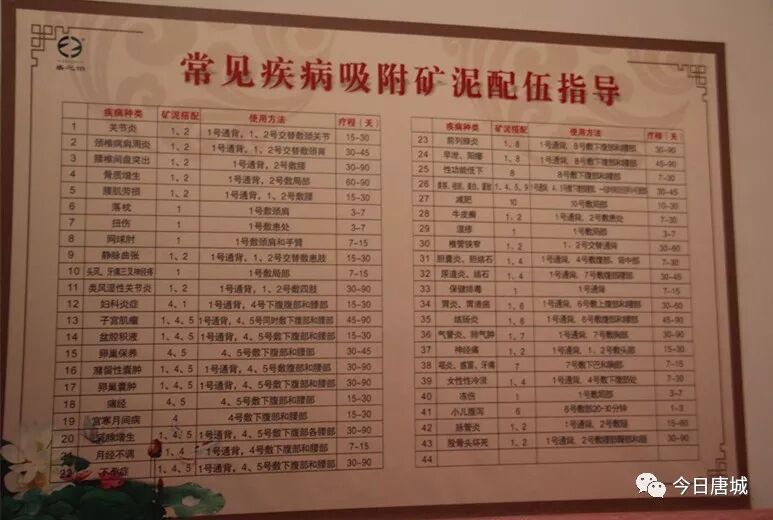 常见疾病吸附矿泥配伍指导
疾病种类 矿泥搭配 使用方法 疗程（天）
1 关节炎 1、2 1号通背，1、2号交替敷颈关节 15-30
2 颈椎病肩周炎 1、2 1号通背，1、2号交替敷颈肩 30-45
3 腰椎间盘突出 1、2 1号通背，1、2号敷腰 30-90
4 骨质增生 1、2 1号通背，2号敷局部 60-90
5 腰肌劳损 1、2 1号通背，1、2号敷腰 15-30
6 落枕 1 1号敷颈肩 3-7
7 扭伤 1 1号敷患处 3-7
8 网球肘 1 1号敷颈肩和手臂 7-15
9 静脉曲张 1、2 1号通背，1、2号交替敷患肢 15-30
10 头风、牙痛三叉神经疼 1 1号敷局部 7-15
11 类风湿性关节炎 1、2 1号通背，1、2号敷四肢 30-90
12 妇科炎症 4、1 4号下腹腹部和腰部 15-30
13 子宫肌瘤 1、4、5 1号通背，4、5号同时敷下腹部和腰部 30-90
14 盆腔积液 1、4、5 1号通背，4、5号敷下腹部和腰部 15-30
15 卵巢保养 4、5 4、5号敷下腹部和腰部 30-45
16 潴留性囊肿 1、4、5 1号通背，4、5号敷腹部和腰部 30-90
17 卵巢囊肿 1、4、5 1号通背，4、5号敷下腹部和腰部 30-90
18 痛经 4、5 4、5号敷下腹部和腰部 15-30
19 宫寒月间病 4 4号敷下腹部和腰部 15-30
20 腺增生 1、4、5 1号通背，4、5号敷下腹部各腰部 30-90
21 月经不调 1、4、5 1号通背，4号敷下腹部和腰部 7-15
不孕症 1、4、5 1号通背，4、5号敷下腹部和腰部 30-90
疾病种类 矿泥搭配 使用方法 疗程（天）
23 前列腺炎 1、8 1号通背，8号敷下腹部和腰部 30-90
24 早泄、阳痿 1、8 1号通背，8号敷下腹部和腰部 45-90
25 性功能低下 8 8号敷下腹部和腰部 30-60
26 1、4、5、9 30-45
27 减肥 10 10号敷局部 30-90
28 牛皮癣 1、2 1号通背，2号敷患处 15-30
29 湿疹 1 1号敷局部 3-7
30 椎管狭窄 1、2 1、2号交替通背 30-60
31 胆囊炎、胆结石 1、4 1号通背，4号敷腹部、背中部 30-90
32 尿道炎、结石 1、4 1号通背，7号敷腹部腰部 30-45
33 保健排毒 1 1号通背 7-15
34 胃炎、胃溃疡 1、6 1号通背，6号敷上腹部和腰部 30-60
35 结肠炎 1、6 1号通背，6号敷腹部和腰部 30-45
36 气管炎、肺气肿 1、7 1号通背，7号敷胸部 30-90
37 神经痛 1、2 1号通背，1、2号敷头部 15-30
38 咽炎、感冒、牙痛 7 7号敷下巴和胸部 7-15
39 女性性冷淡 1、4 1号通背，4号敷下腹部处 7-30
40 冻伤 1 1号敷局部 3-7
41 小儿腹泻 6 6号敷部20-30分钟 1-3
42 脉管炎 1、2 1号通背，2号敷腿 15-60
43 股骨头坏死 1、2 30-90
44
今日唐城